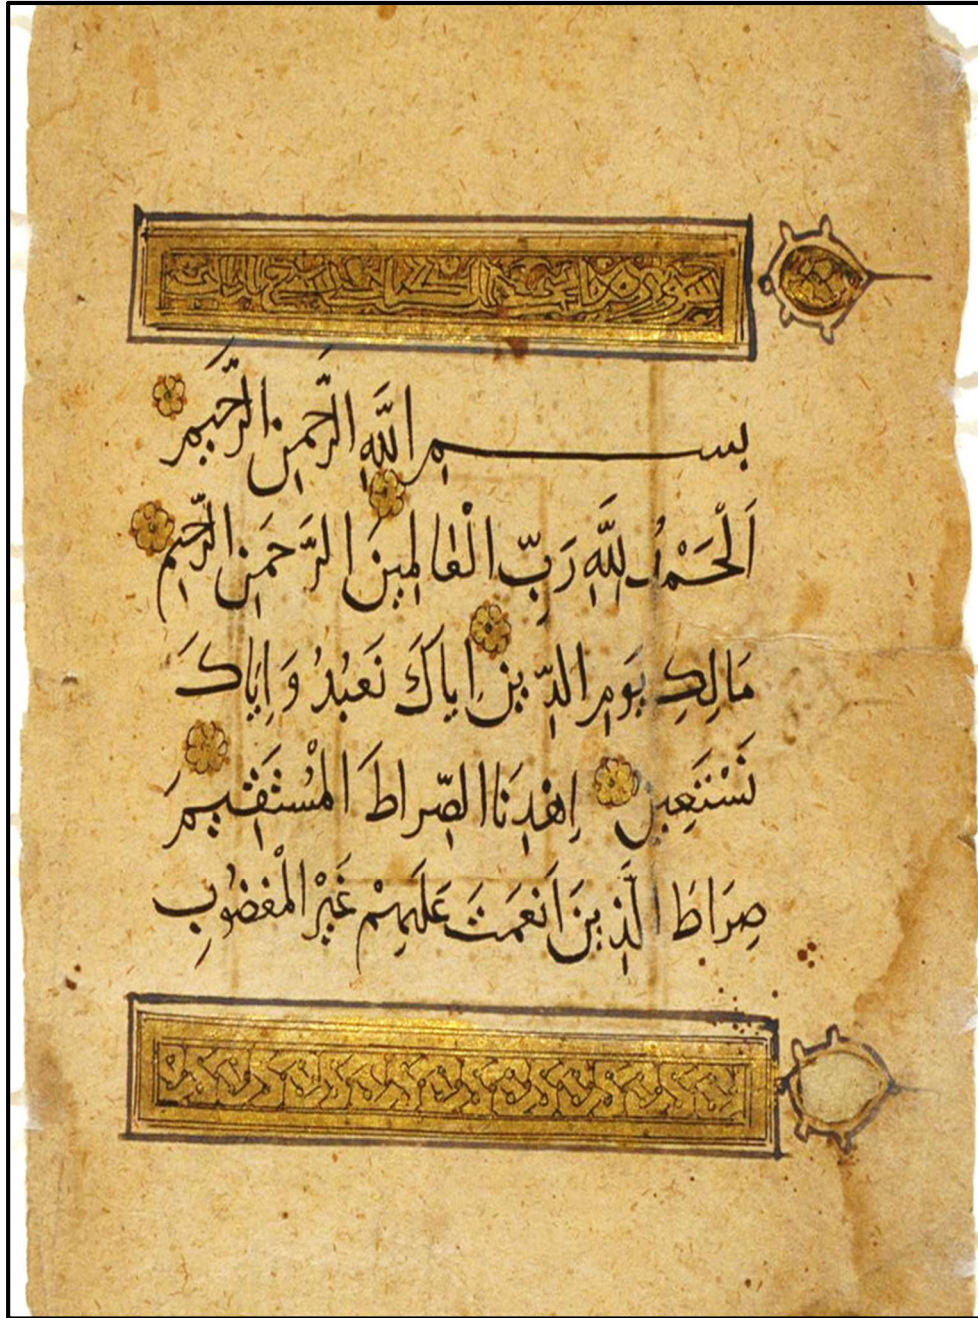 سورة فاتحة الكتاب سبع ايات
بســـــم اللَّهِ الرَّحمنِ الرَّحِيمِ
اَلْحَمْدُ لِلَّهِ رَبِّ الْعَالَمِينَ الرَّحمَنِ الرَّحِيمِ
مَالِكِ يَومِ الدِّينِ اِيَّاكَ نَعْبُدُ وَاِيَّاكَ
نَسْتَعِينُ اِهْدِنَا الصِّراطَ الْمُسْتَقِيمَ
صِرَاطَ الَّذِينَ اَنْعَمتَ عَلَيهِمْ غَيْرِ الْمَغضُوبِ